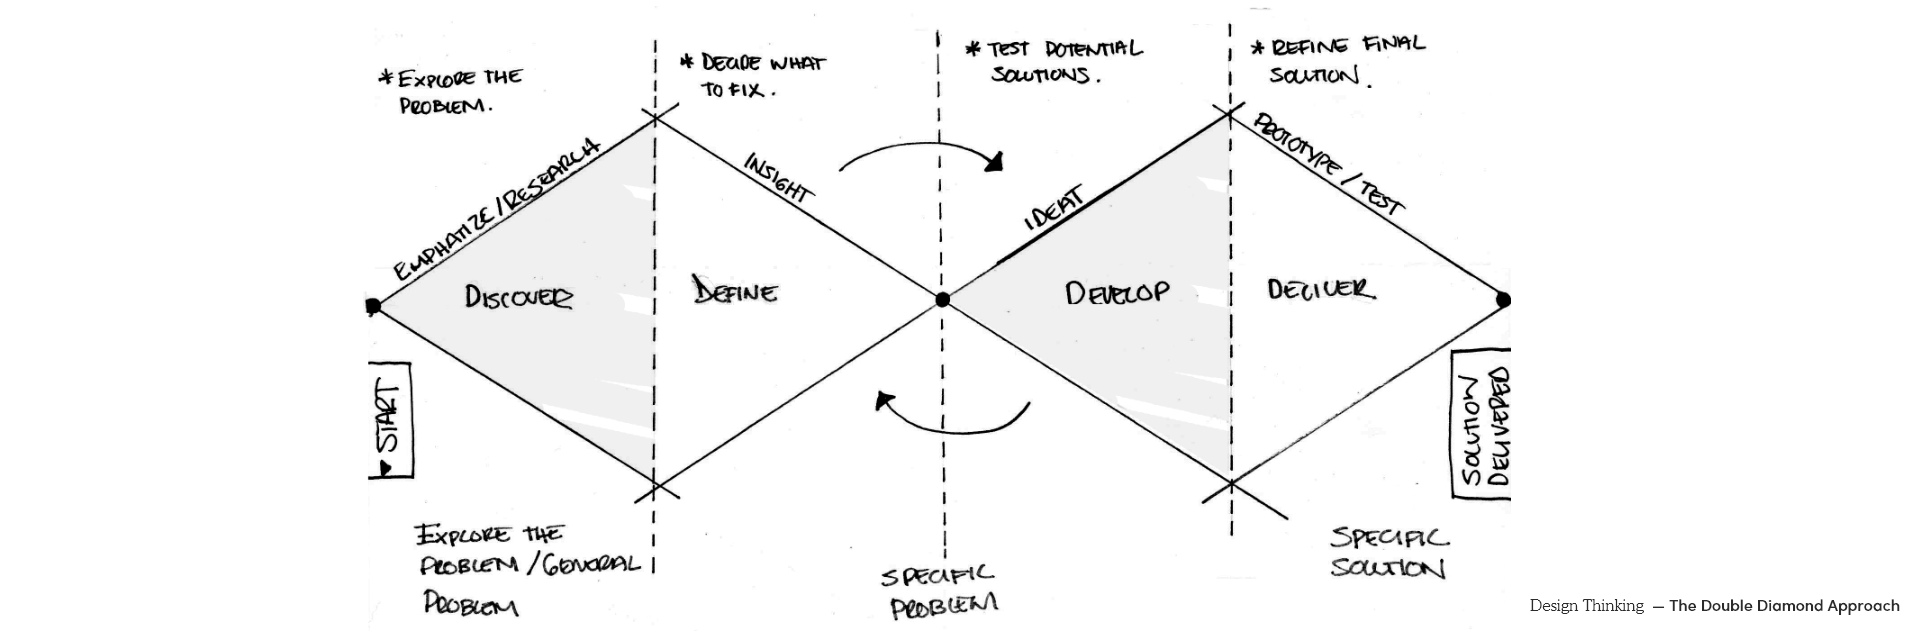 * EXPLORE THE
PROBLEM.
* DECIDE WHAT
TO FIX.
* TEST POTENTIAL
SOLUTIONS.
* REFINE FINAL
SOLUTION.
EMPHATIZE/RESEARCH
INSIGHT
IDEAT
PROTOTYPE / TEST
DISCOVER
DEFINE
DEVELOP
DELIVER
START
SOLUTION
DELIVERED
EXPLORE THE
PROBLEM/GENERAL
PROBLEM
SPECIFIC
PROBLEM
SPECIFIC
SOLUTION
Design Thinking — The Double Diamond Approach